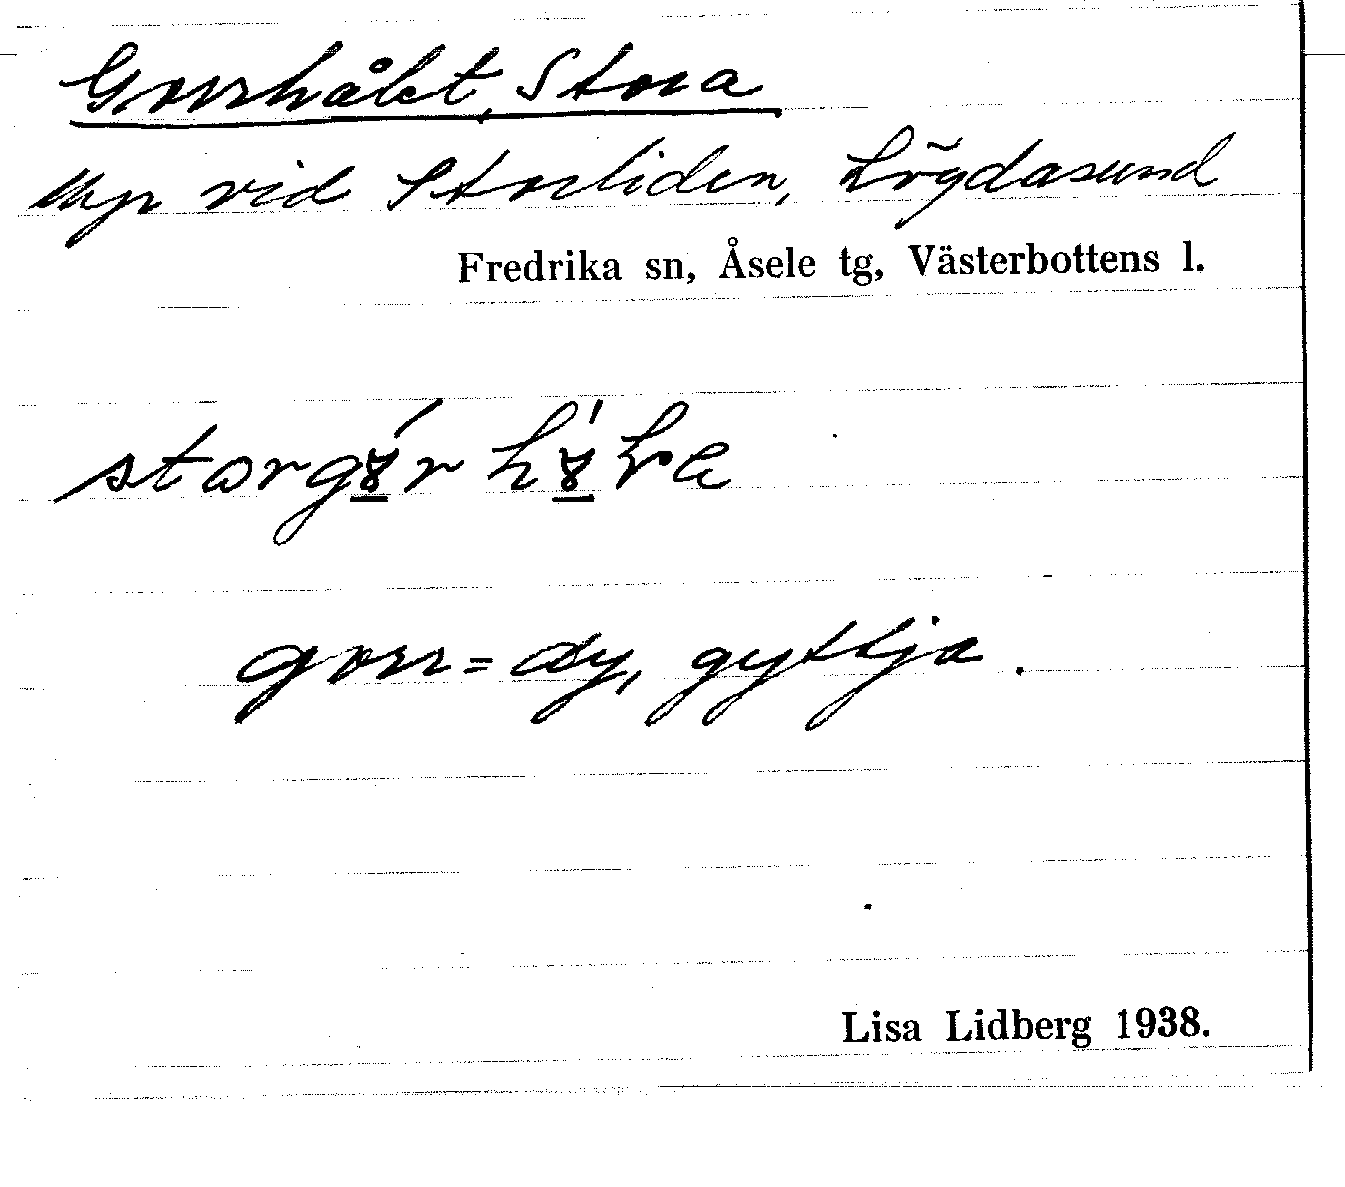 Gorrhålet, Stora
Myr vid Storliden, Lögdasund
Fredrika sn, Åsele tg, Västerbottens l.
gorr = dy, gyttja.
Lisa Lidberg 1938.